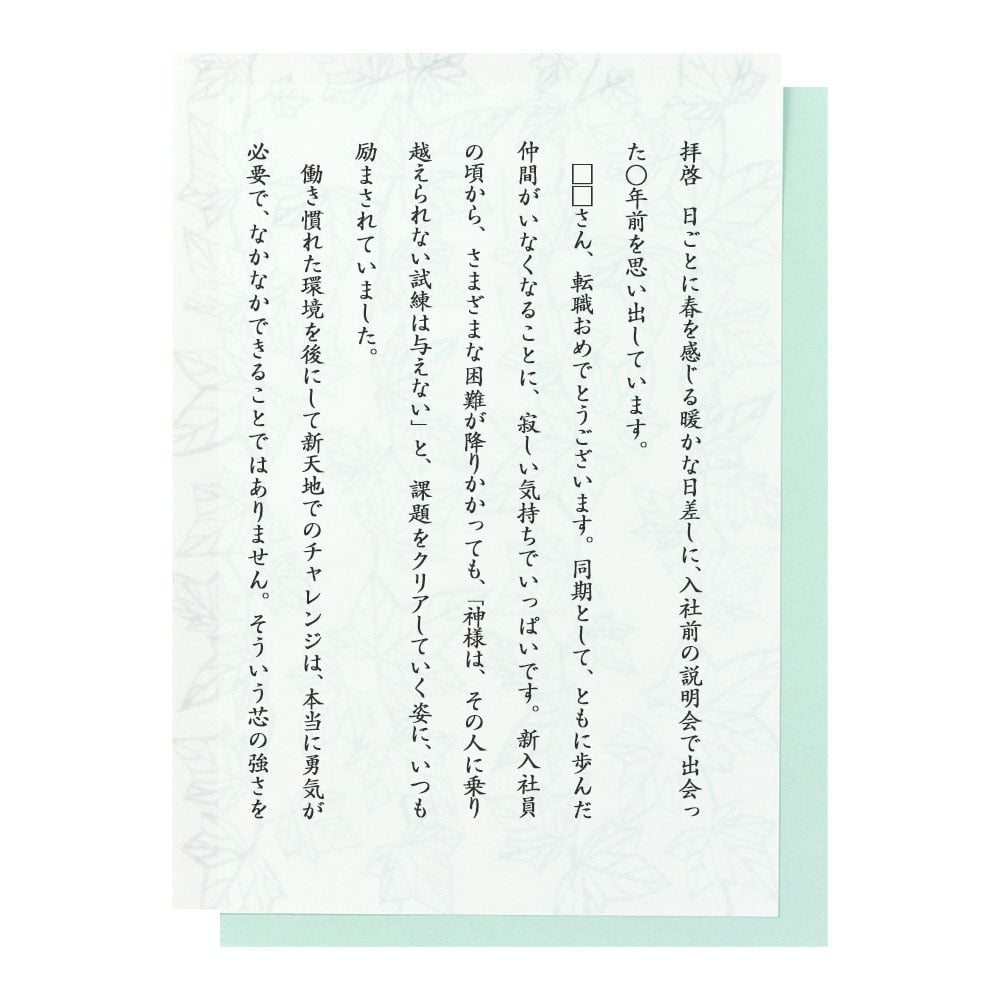 拝啓　日ごとに春を感じる暖かな日差しに、入社前の説明会で出会っ
た〇年前を思い出しています。
　□□さん、転職おめでとうございます。同期として、ともに歩んだ
仲間がいなくなることに、寂しい気持ちでいっぱいです。新入社員
の頃から、さまざまな困難が降りかかっても、「神様は、その人に乗り
越えられない試練は与えない」と、課題をクリアしていく姿に、いつも
励まされていました。
　働き慣れた環境を後にして新天地でのチャレンジは、本当に勇気が
必要で、なかなかできることではありません。そういう芯の強さを